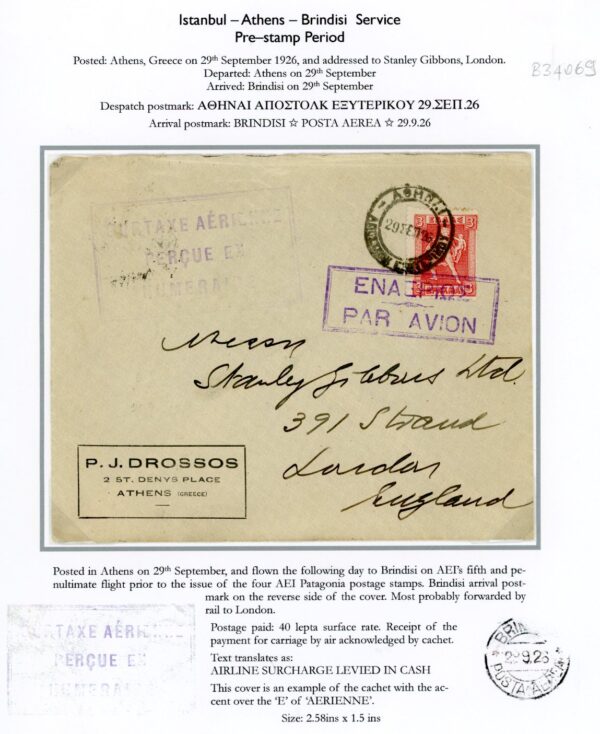 Istanbul – Athens – Brindisi Service
Pre–stamp Period
Posted: Athens, Greece on 29th September 1926, and addressed to Stanley Gibbons, London.
Departed: Athens on 29th September
Arrived: Brindisi on 29th September
B34069
Despatch postmark: ΑΘΗΝΑΙ ΑΠΟΣΤΟΛΚ ΕΞΥΤΕΡΙΚΟΥ 29.ΣΕΠ.26
Arrival postmark: BRINDISI ☆ POSTA AEREA ☆ 29.9.26
SURTAXE AÉRIENNE
PERÇUE EN
NUMERAIRE
ΑΘΗΝΑΙ
29 ΣΕΠ 26
3 ΕΛΛΑΣ 3
PAR AVION
Messrs
Stanley Gibbons Ltd.
391 Strand
London
England
P. J. DROSSOS
2 ST. DENYS PLACE
ATHENS (GREECE)
Posted in Athens on 29th September, and flown the following day to Brindisi on AEI's fifth and pe-
nultimate flight prior to the issue of the four AEI Patagonia postage stamps. Brindisi arrival post-
mark on the reverse side of the cover. Most probably forwarded by
rail to London.
Postage paid: 40 lepta surface rate. Receipt of the
payment for carriage by air acknowledged by cachet.
Text translates as:
AIRLINE SURCHARGE LEVIED IN CASH
This cover is an example of the cachet with the ac-
cent over the 'E' of 'AERIENNE'.
Size: 2.58ins x 1.5 ins
SURTAXE AÉRIENNE
PERÇUE EN
NUMERAIRE
BRIN
29.9.26
POSTA AEREA